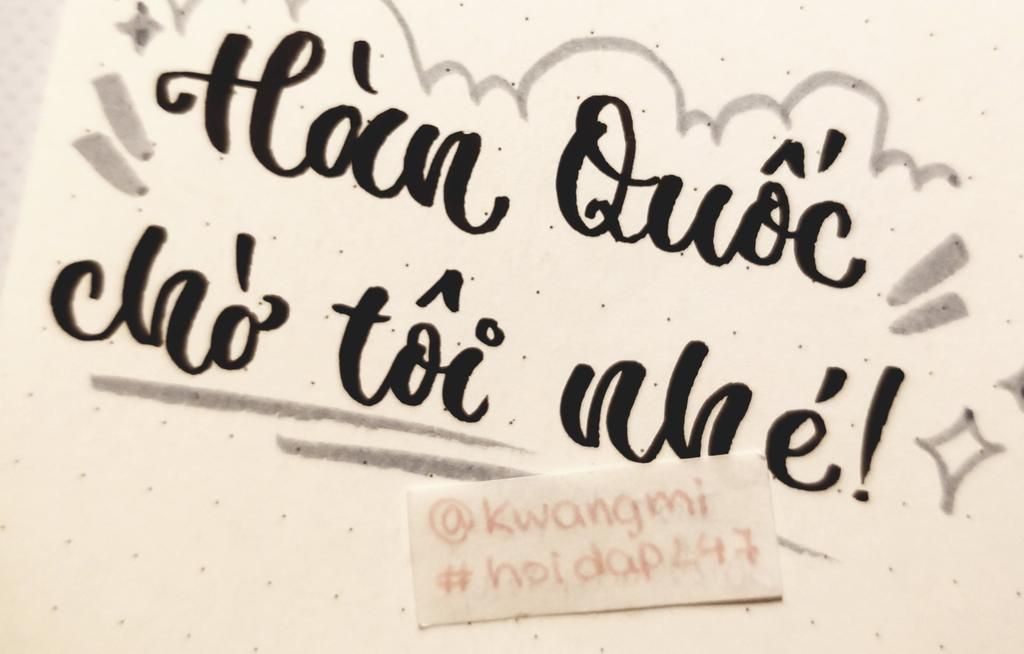 Hàn Quốc
chờ tôi nhé!
@kwangmi
#hoidap247